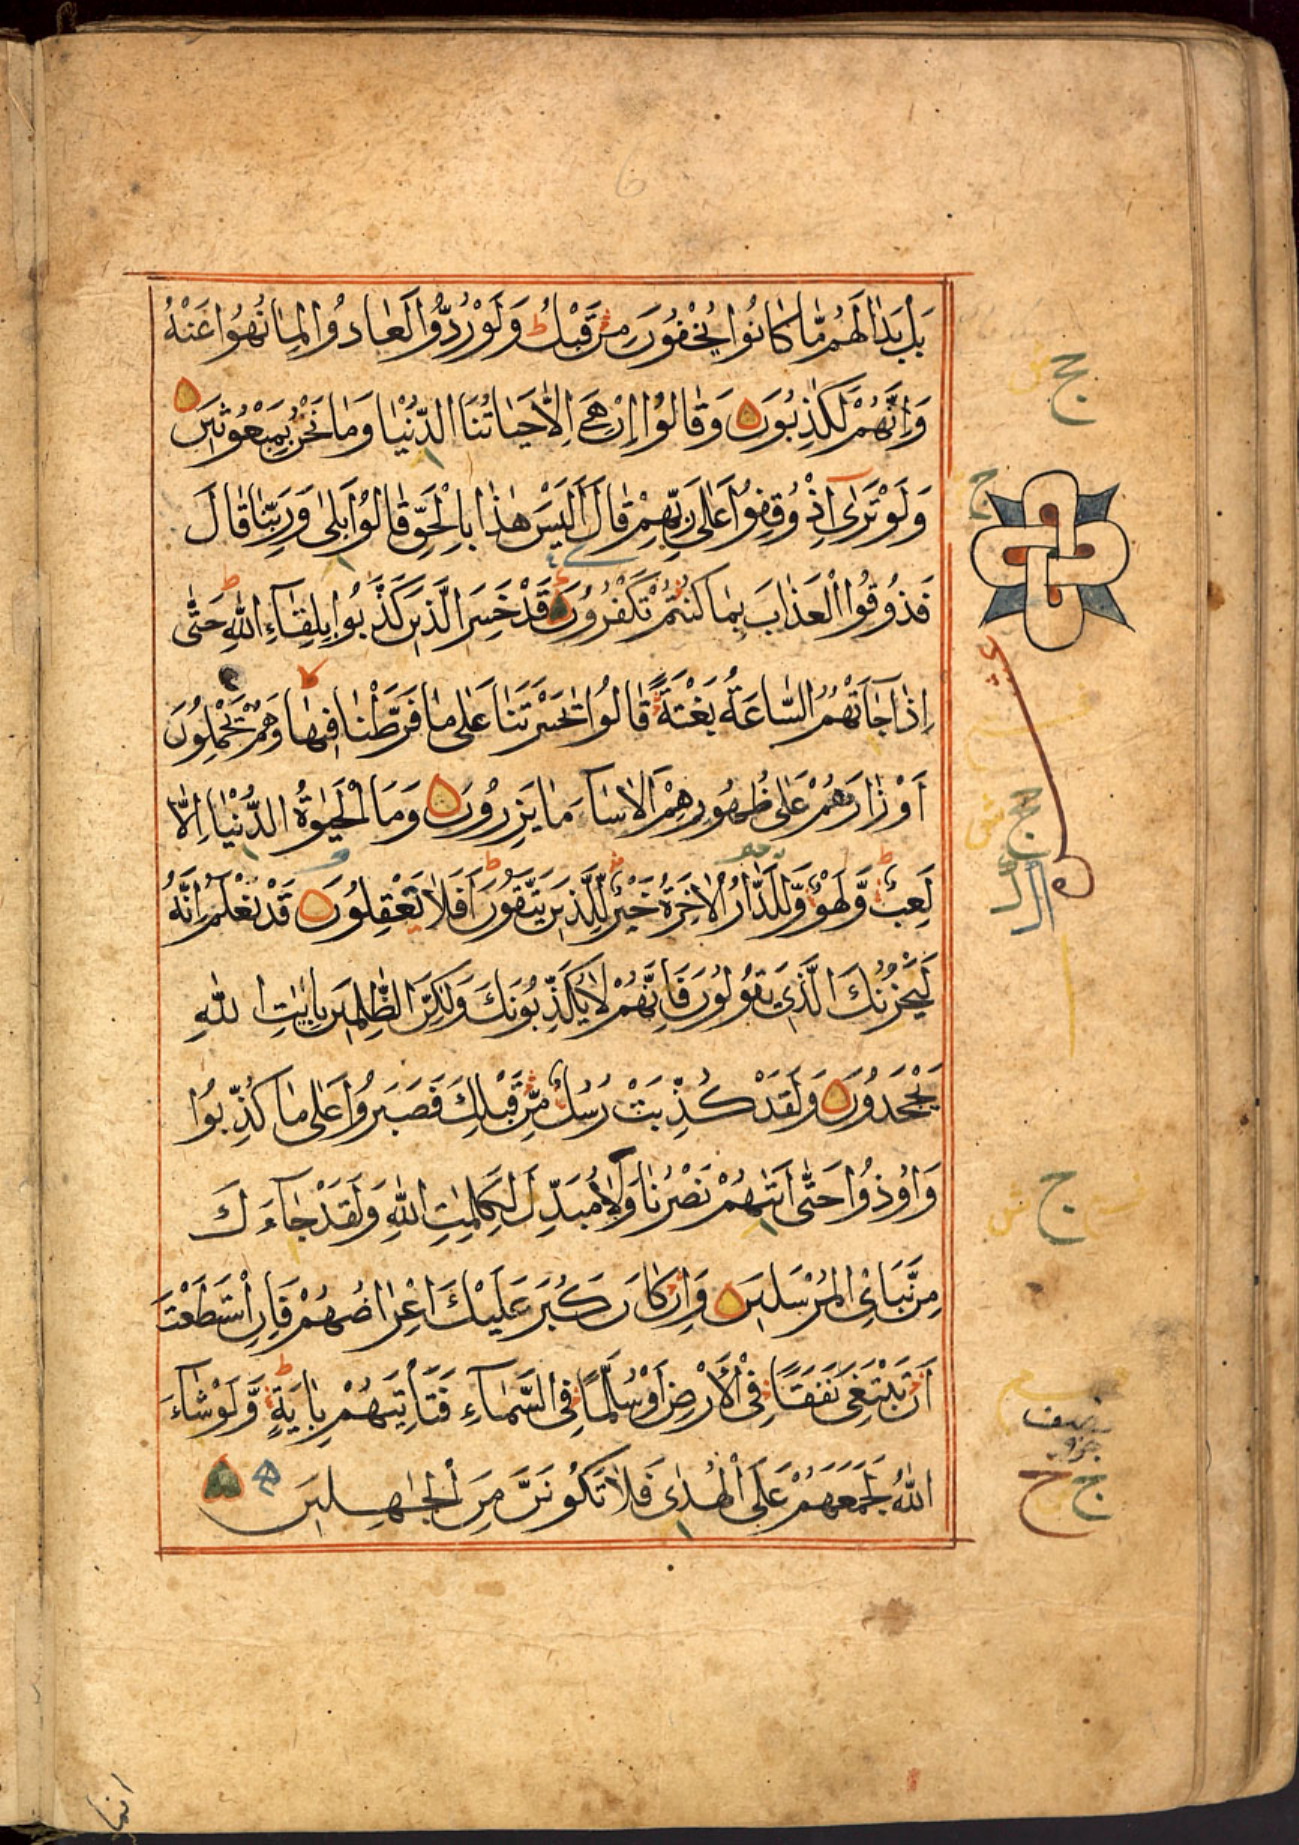 بَلْ بَدَا لَهُمْ مَّا كَانُوا يُخْفُونَ مِنْ قَبْلُ ط وَلَوْ رُدُّوا لَعَادُوا لِمَا نُهُوا عَنْهُ
وَاِنَّهُمْ لَكٰذِبُونَ وَقَالُوا اِنْ هِيَ اِلَّا حَيَاتُنَا الدُّنْيَا وَمَا نَحْنُ بِمَبْعُوثِينَ
وَلَوْ تَرٰى اِذْ وُقِفُوا عَلٰى رَبِّهِمْ قَالَ اَلَيْسَ هٰذَا بِالْحَقِّ قَالُوا بَلٰى وَرَبِّنَا قَالَ
فَذُوقُوا الْعَذَابَ بِمَا كُنْتُمْ تَكْفُرُونَ قَدْ خَسِرَ الَّذِينَ كَذَّبُوا بِلِقَاءِ اللّٰهِ ط حَتّٰى
اِذَا جَاَتْهُمُ السَّاعَةُ بَغْتَةً قَالُوا يٰحَسْرَتَنَا عَلٰى مَا فَرَّطْنَا فِيهَا وَهُمْ يَحْمِلُونَ
اَوْزَارَهُمْ عَلٰى ظُهُورِهِمْ اَلَا سَآءَ مَا يَزِرُونَ وَمَا الْحَيٰوةُ الدُّنْيَا اِلَّا
لَعِبٌ وَّلَهْوٌ وَّلَلدَّارُ الْاٰخِرَةُ خَيْرٌ لِّلَّذِينَ يَتَّقُونَ ط اَفَلَا تَعْقِلُونَ قَدْ نَعْلَمُ اِنَّهُ
لَيَحْزُنُكَ الَّذِي يَقُولُونَ فَاِنَّهُمْ لَا يُكَذِّبُونَكَ وَلٰكِنَّ الظّٰلِمِينَ بِاٰيٰتِ اللّٰهِ
يَجْحَدُونَ وَلَقَدْ كُذِّبَتْ رُسُلٌ مِّنْ قَبْلِكَ فَصَبَرُوا عَلٰى مَا كُذِّبُوا
وَاُوذُوا حَتّٰى اَتٰىهُمْ نَصْرُنَا وَلَا مُبَدِّلَ لِكَلِمٰتِ اللّٰهِ وَلَقَدْ جَآءَكَ
مِنْ نَّبَاِئ الْمُرْسَلِينَ وَاِنْ كَانَ كَبُرَ عَلَيْكَ اِعْرَاضُهُمْ فَاِنِ اسْتَطَعْتَ
اَنْ تَبْتَغِيَ نَفَقًا فِي الْاَرْضِ اَوْ سُلَّمًا فِي السَّمَآءِ فَتَاْتِيَهُمْ بِاٰيَةٍ ط وَّلَوْ شَآءَ
اللّٰهُ لَجَمَعَهُمْ عَلَى الْهُدٰى فَلَا تَكُونَنَّ مِنَ الْجٰهِلِينَ
ج
نصف
جزو
انما